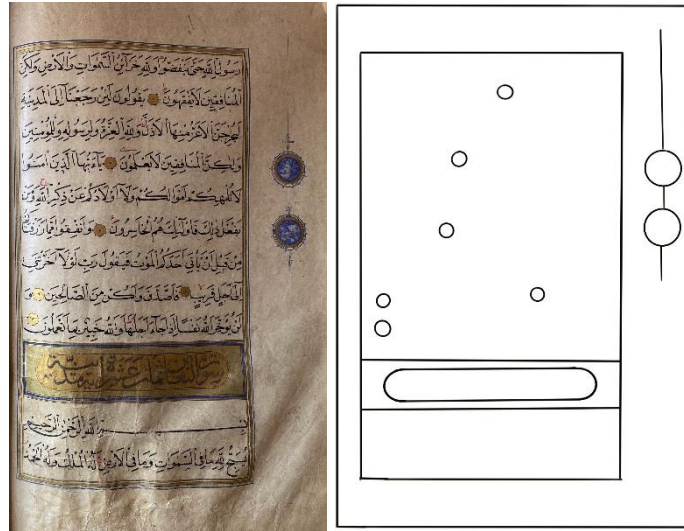 رسول الله حتى ينفضوا ولله خزائن السموات والأرض ولكن
المنافقين لا يفقهون يقولون لئن رجعنا إلى المدينة
ليخرجن الأعز منها الأذل ولله العزة ولرسوله وللمؤمنين
ولكن المنافقين لا يعلمون يا أيها الذين آمنوا
لا تلهكم أموالكم ولا أولادكم عن ذكر الله ومن
يفعل ذلك فأولئك هم الخاسرون وأنفقوا مما رزقناكم
من قبل أن يأتي أحدكم الموت فيقول رب لولا أخرتني
إلى أجل قريب فأصدق وأكن من الصالحين و
لن يؤخر الله نفسا إذا جاء أجلها والله خبير بما تعملون
سورة التغابن ثمان عشرة آية
بسم الله الرحمن الرحيم
يسبح لله ما في السموات وما في الأرض له الملك وله الحمد